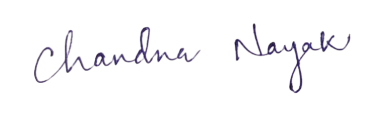 Chandna Nayak